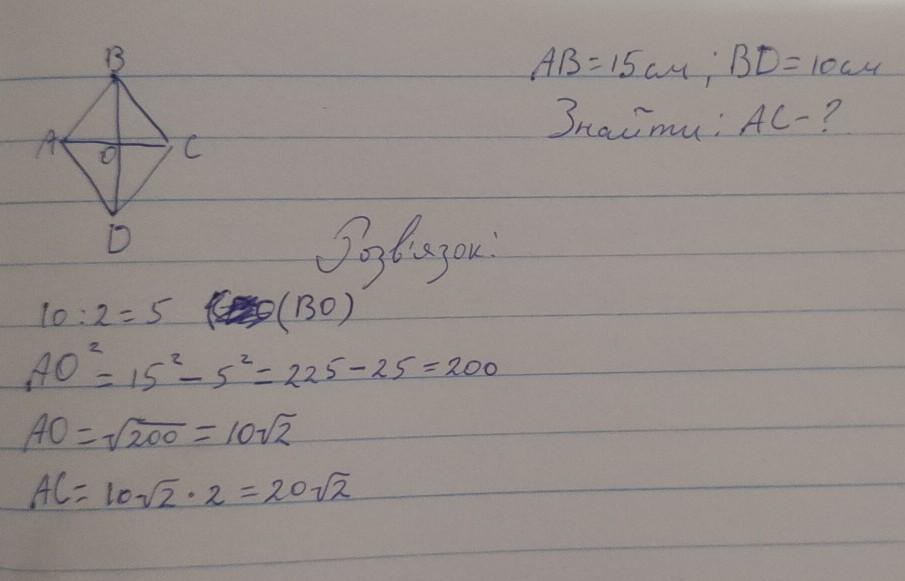 B
AB=15см; BD=10см
Знайти: AC-?
A O C
D
Розв'язок:
10:2=5 (BO)
AO²=15²-5²=225-25=200
AO=√200=10√2
AC=10√2·2=20√2